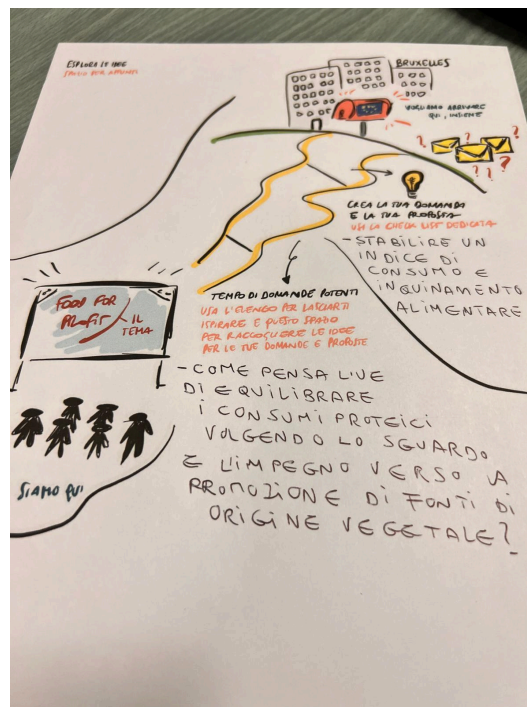 ESPLORA LE IDEE
SPAZIO PER APPUNTI
BRUXELLES
VOGLIAMO ARRIVARE
QUI, INSIEME
? ? ? ? ?
CREA LA TUA DOMANDA
E LA TUA PROPOSTA
USA LA CHECK LIST DEDICATA
- STABILIRE UN
INDICE DI
CONSUMO E
INQUINAMENTO
ALIMENTARE
TEMPO DI DOMANDE POTENTI
USA L'ELENCO PER LASCIARTI
ISPIRARE E QUESTO SPAZIO
PER RACCOGLIERE LE IDEE
PER LE TUE DOMANDE E PROPOSTE
FOOD FOR
PROFIT
IL
TEMA
SIAMO QUI
- COME PENSA L'UE
DI EQUILIBRARE
I CONSUMI PROTEICI
VOLGENDO LO SGUARDO
E L'IMPEGNO VERSO LA
PROMOZIONE DI FONTI DI
ORIGINE VEGETALE?